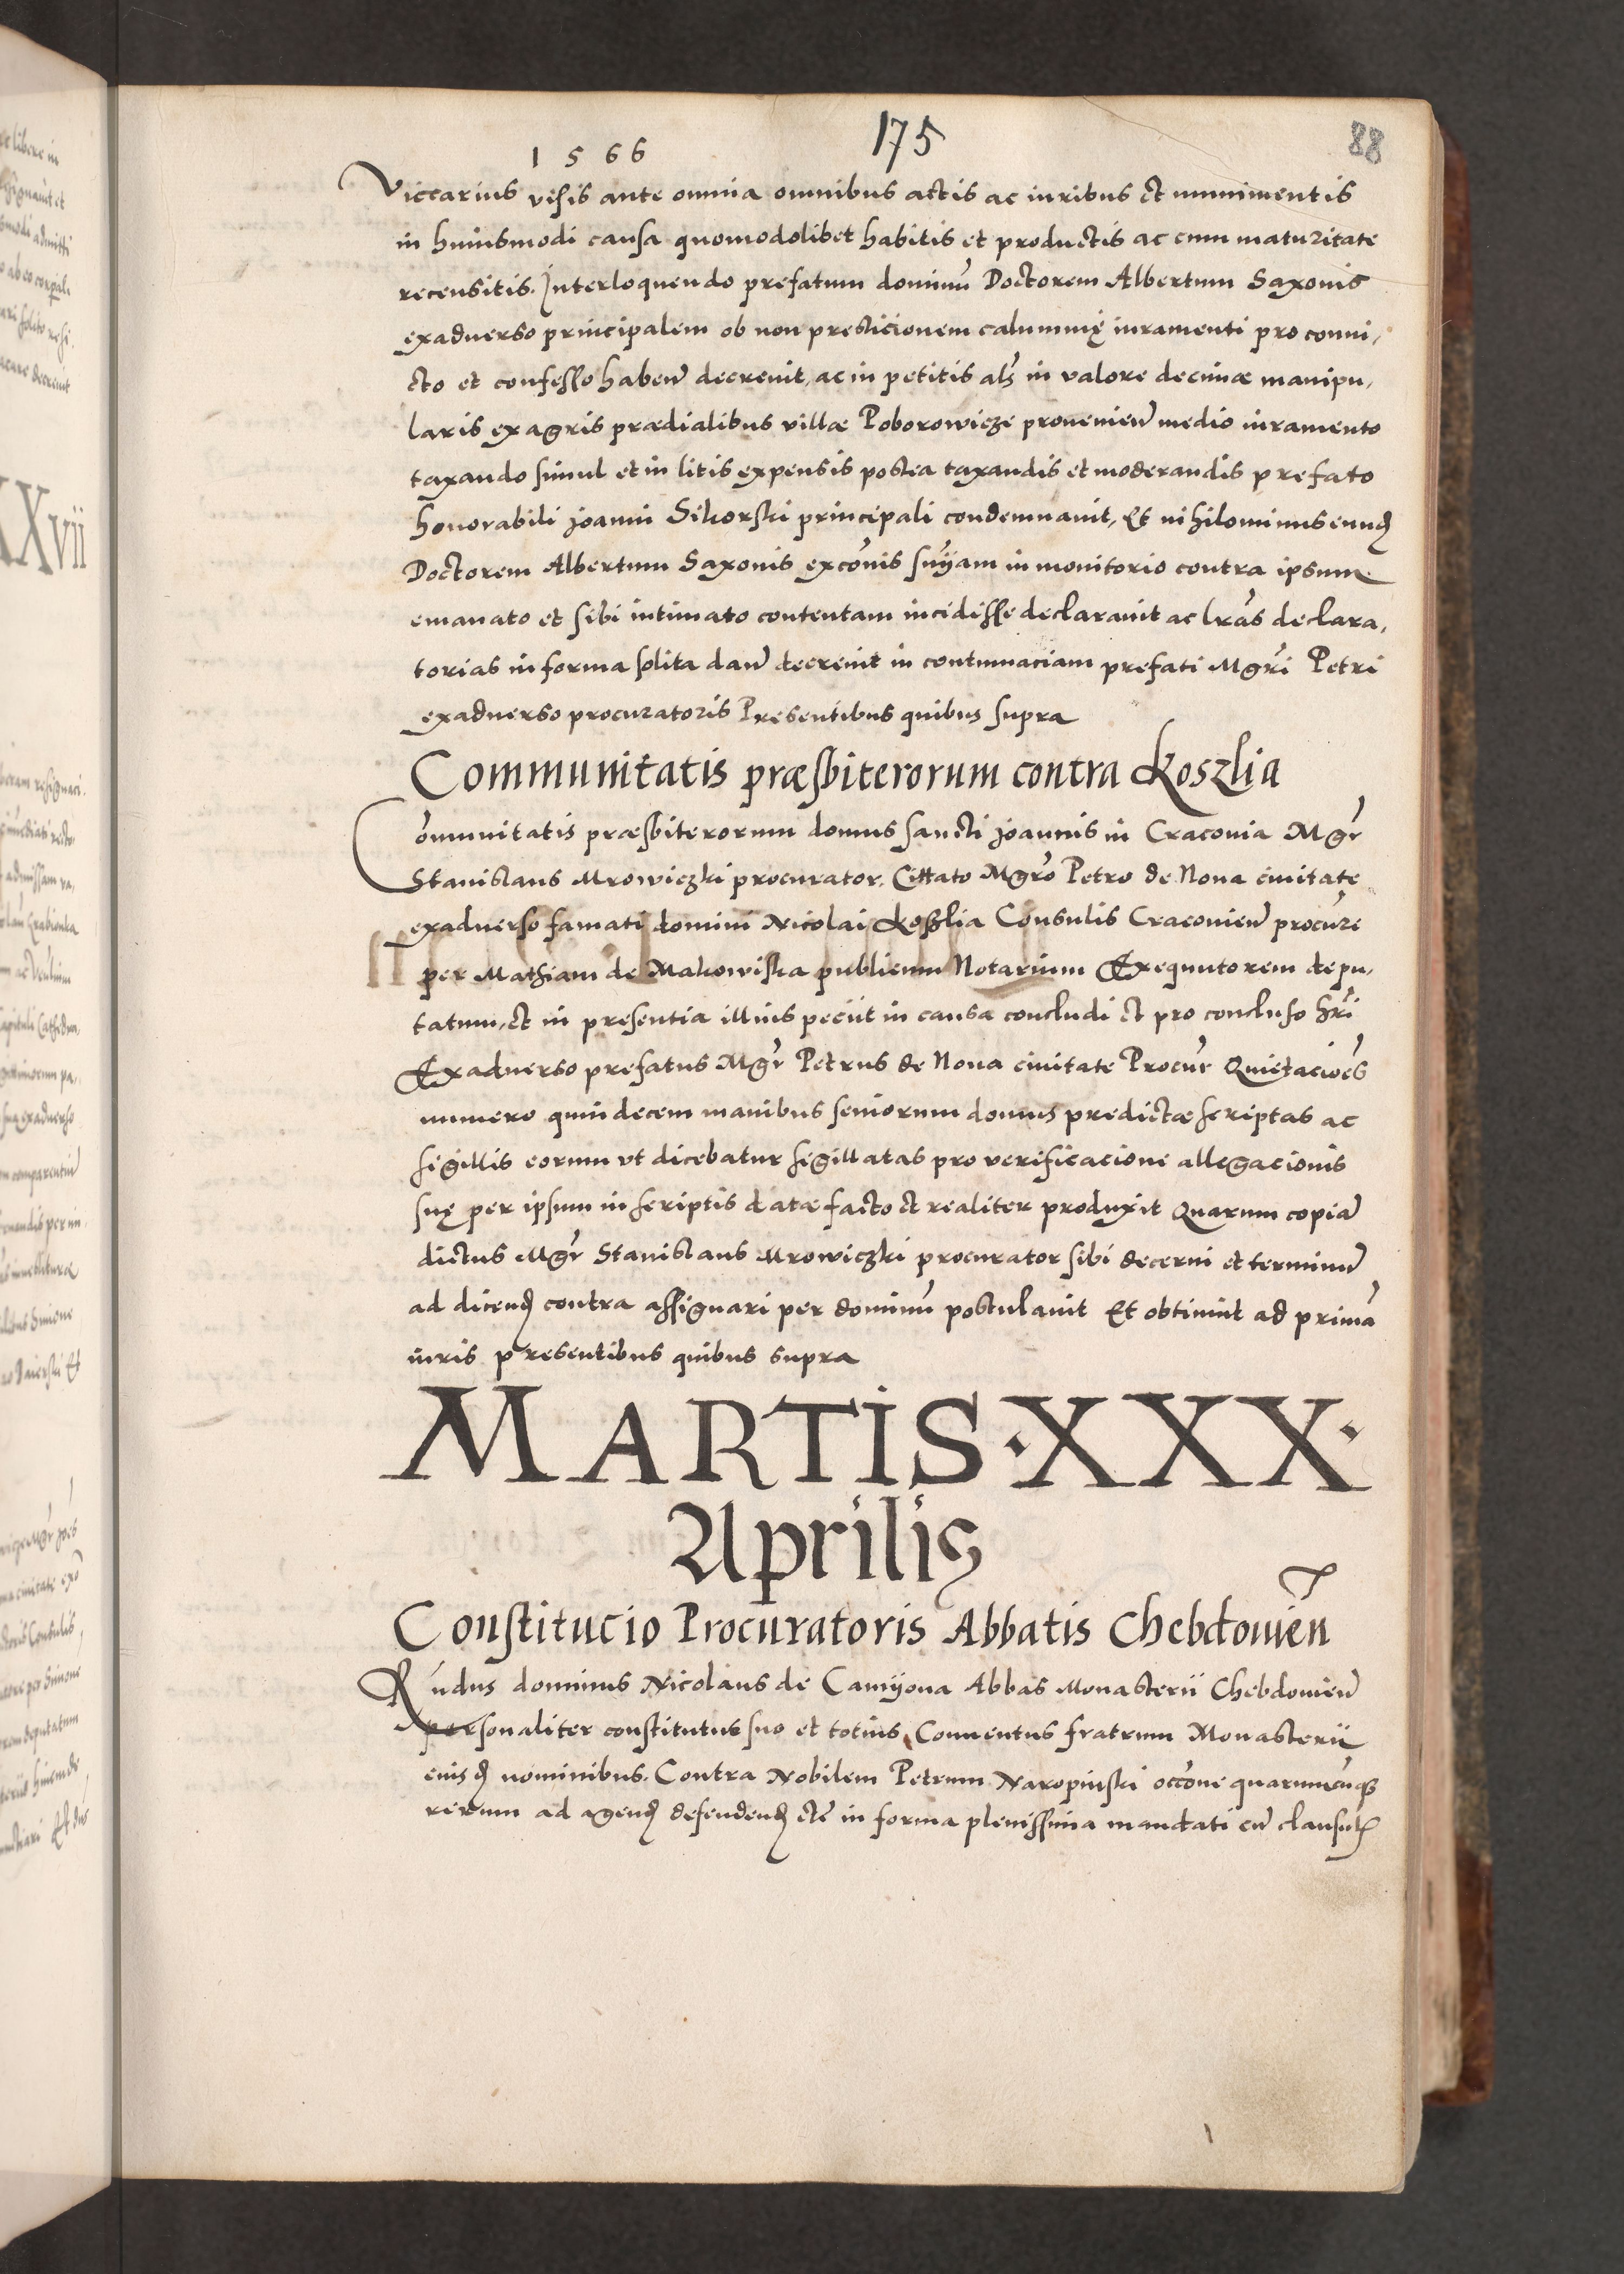 1566
175
88
Viccarius visis ante omnia omnibus actis ac iuribus et munimentis
in huiusmodi causa quomodolibet habitis et productis ac cum maturitate
recensitis. Interloquendo prefatum dominũ Doctorem Albertum Saxonis
exadverso principalem ob non presticionem calumnię iuramenti pro conui,
cto et confesso habeñ decreuit, ac in petitis als in valore decimæ manipu,
laris ex agris prædialibus villæ Poborowicze prouenieñ medio iuramento
taxando simul et in litis expensis postea taxandis et moderandis prefato
honorabili Joanni Sikorski principali condemnauit, Et nihilominus eund
Doctorem Albertum Saxonis excõnis snÿam in monitorio contra ipsum
emanato et sibi intimato contentam incidisse declarauit ac lrãs declara,
torias in forma solita dañ decreuit in contumaciam prefati Mgri Petri
exadverso procuratoris Presentibus quibus supra
Communitatis præsbiterorum contra Koszlia
Cõmunitatis præsbiterorum domus sancti Joannis in Craconia Mgr
Stanislaus Mrowiczki procurator. Cittato Mgro Petro de Noua ciuitate
exaduerso famati domini Nicolai Koszlia Consulis Cracouieñ procure
per Mathiam de Makowiska publicum Notarium Exequutorem depu,
tatum, et in presentia illius peciit in causa concludi et pro concluso hri
Exaduerso prefatus Mgr Petrus de Noua ciuitate Procur Quietaciões
numero quindecem manibus seniorum domus predictæ scriptas ac
sigillis eorum vt dicebatur sigillatas pro verificacione allegacionis
suę per ipsum in scriptis datæ facto et realiter produxit Quarum copiã
dictus Mgr Stanislaus Mrowiczki procurator sibi decerni et terminũ
ad dicend contra assignari per dominũ postulauit Et obtinuit ad primã
iuris presentibus quibus supra
MARTIS·XXX·
Aprilis
Constitucio Procuratoris Abbatis Chebdouieñ
Rñdus dominus Nicolaus de Camÿona Abbas Monasterii Chebdouieñ
personaliter constitutus suo et totius Conuentus fratrum Monasterii
eiusd nominibus. Contra Nobilem Petrum Naropinski occõne quarumcunq
rerum ad agend defendend etc in forma plenissima mandati cũ clausul